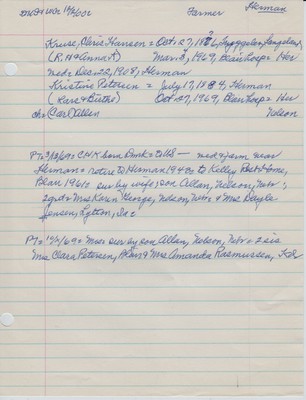 Farmer Herman
Kruse, Chris Hansen = Oct. 27, 18 6, Langeland
(R. H & Anna A) Mar. 3, 1969, Blair Hosp = Her
med = Dec. 22, 1908, Herman
Kristine Petersen = July 17, 1884, Herman
(Lars & Birthe) Oct. 27, 1969, Blair Hosp = Her
ch = Carl Allen Nelson
PT = 3/ /69 = CHK born Dmk = to US — med & farm near
Herman = retire to Herman 1940s to Kelly Rest Home,
Blair 1961 = sur by wife; son Allan, Nelson, Nebr;
2 grd = Mrs Karen George, Nelson, Nebr & Mrs Doyle
Jensen, Lytton, Ia
PT = 10/ /69 = Mrs sur by son Allan, Nelson, Nebr = 2 sis
Mrs Clara Petersen, Blair & Mrs Amanda Rasmussen,